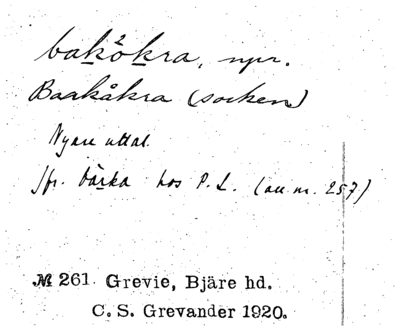 bakö²kra, npr.
Baakåkra (socken)
Nyare uttal.
Jfr. bärka hos P. L. (acc. nr. 257)
№ 261. Grevie, Bjäre hd.
C. S. Grevander 1920.